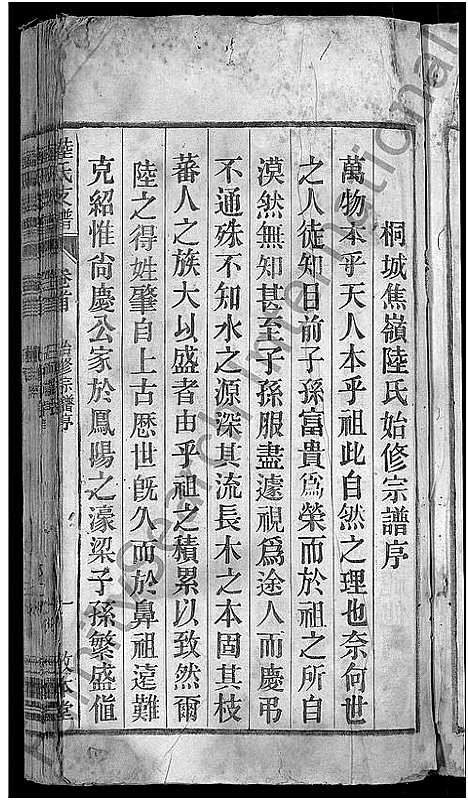 桐城焦嶺陸氏始修宗譜序
萬物本乎天人本乎祖此自然之理也奈何世
之人徒知目前子孫富貴爲榮而於祖之所自
漠然無知甚至子孫服盡遽視爲途人而慶弔
不通殊不知水之源深其流長木之本固其枝
蕃人之族大以盛者由乎祖之積累以致然爾
陸之得姓肇自上古歷世旣久而於鼻祖遠難
克紹惟尙慶公家於鳳陽之濠梁子孫繁盛值
陸氏支譜
卷首
始修宗譜序
一